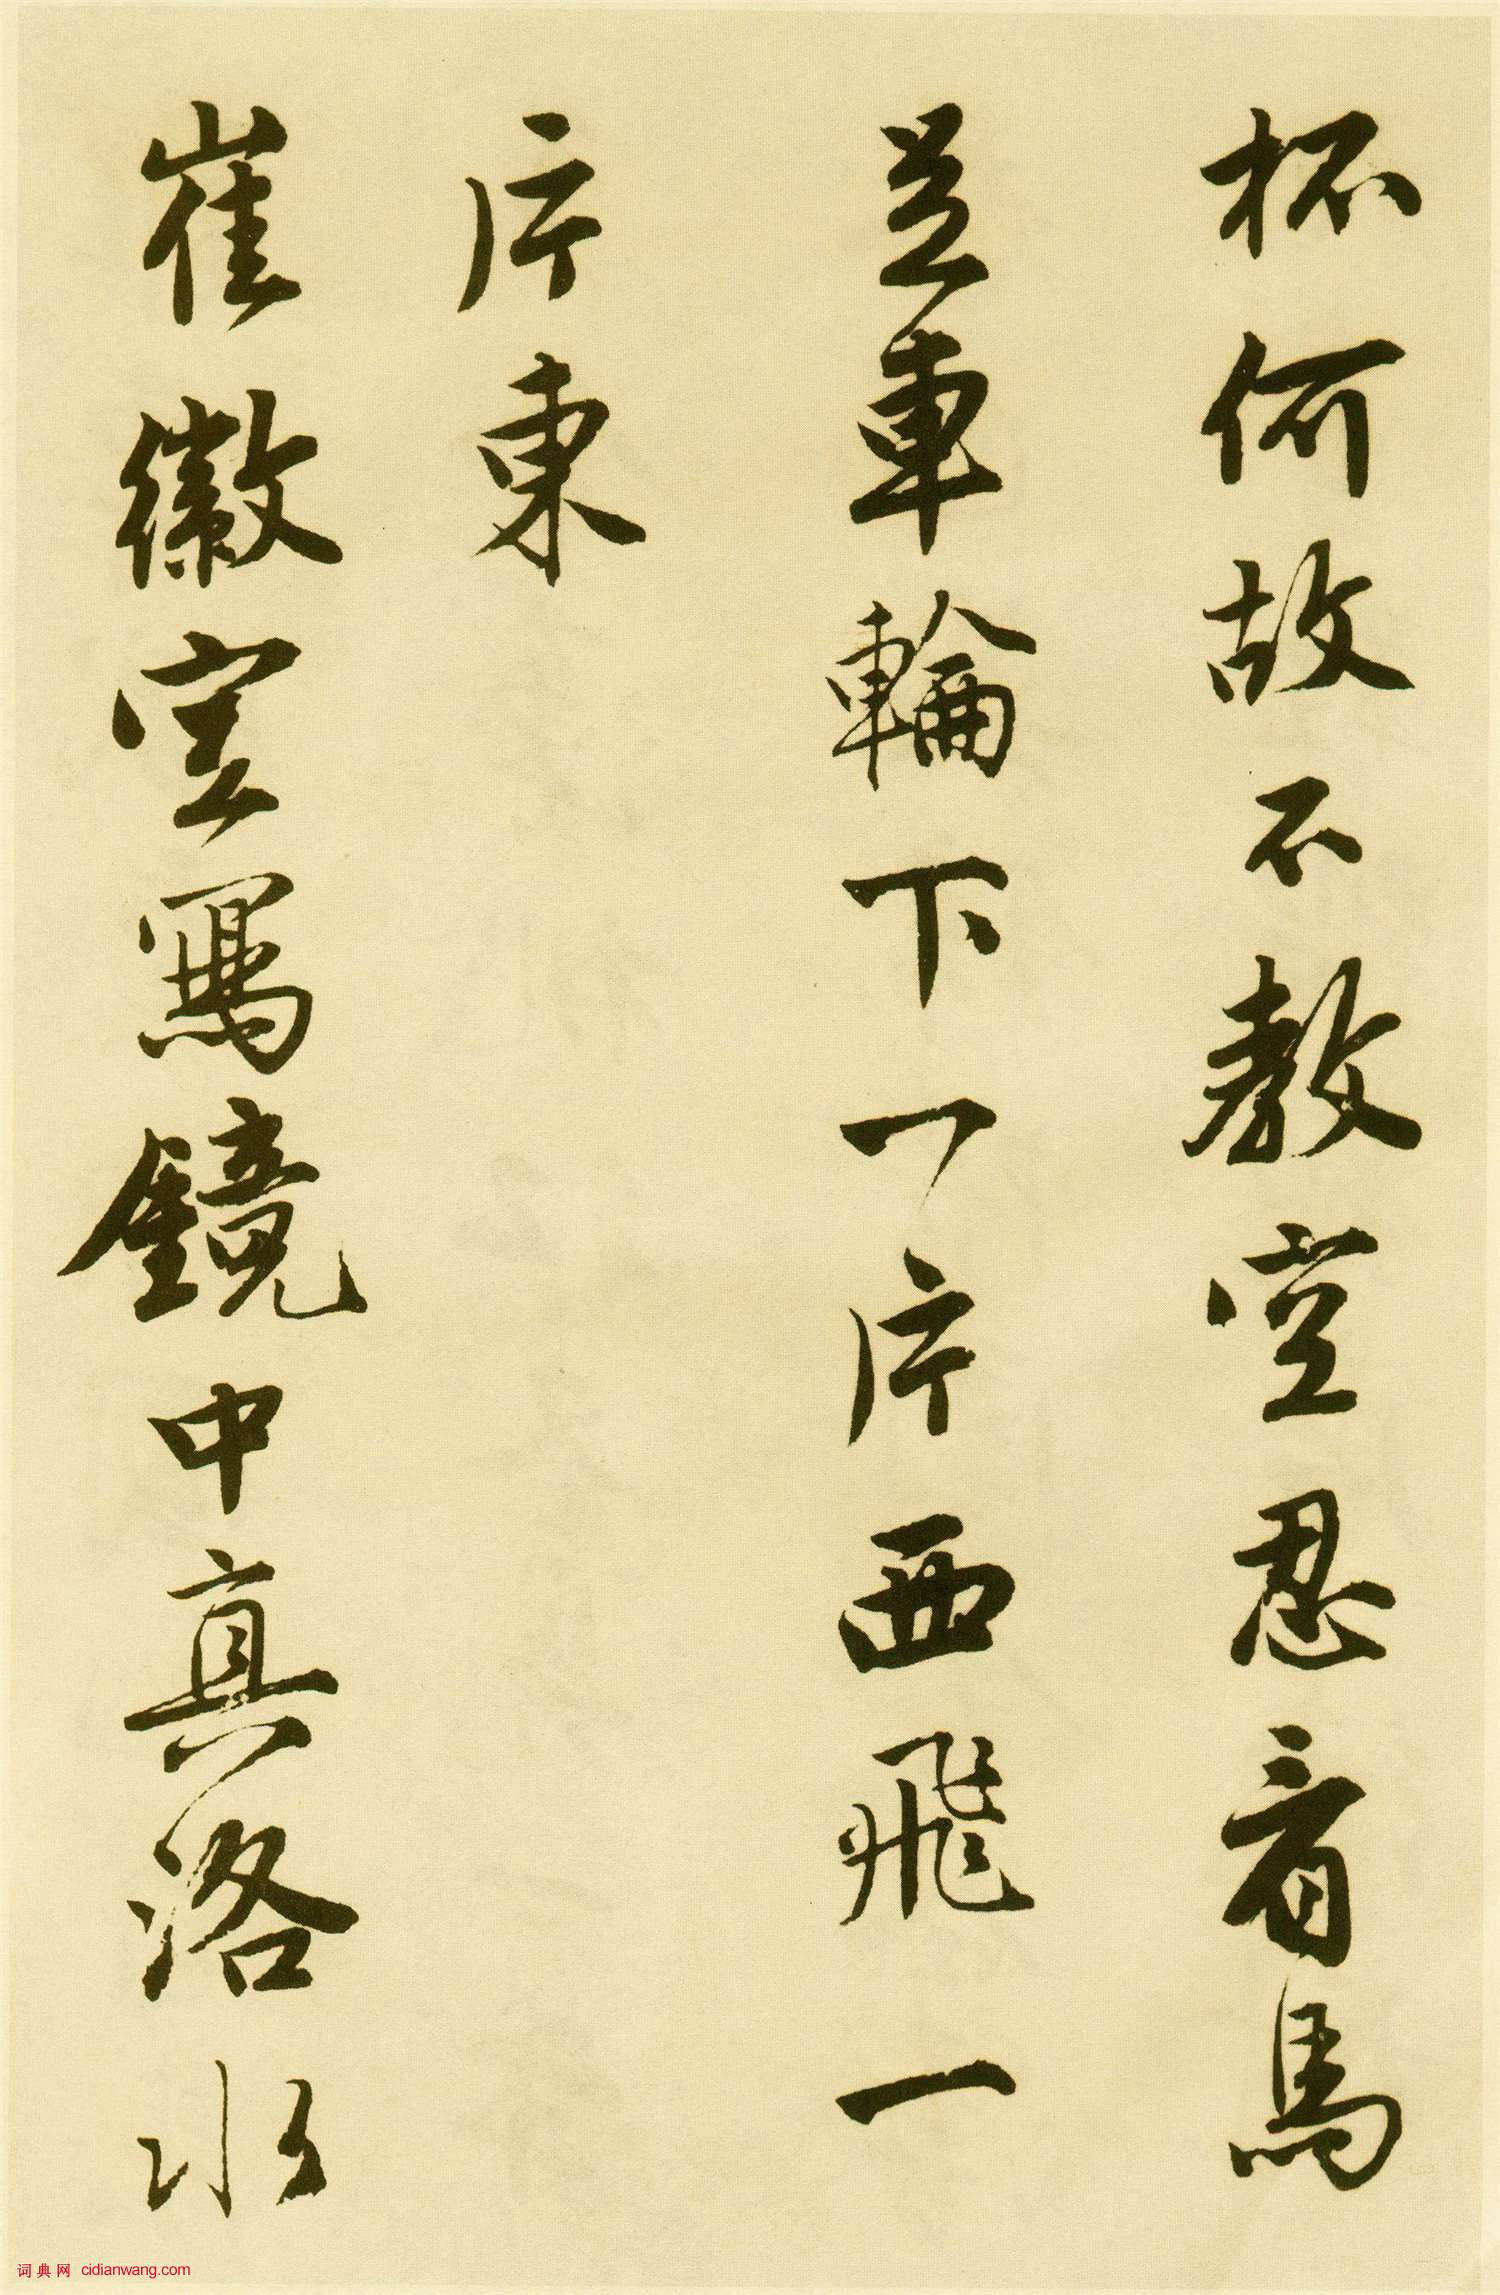 杯何故不教空忍看馬
足車輪下一片西飛一
片東
崔徽空寫鏡中真洛水
词典网 cidianwang.com